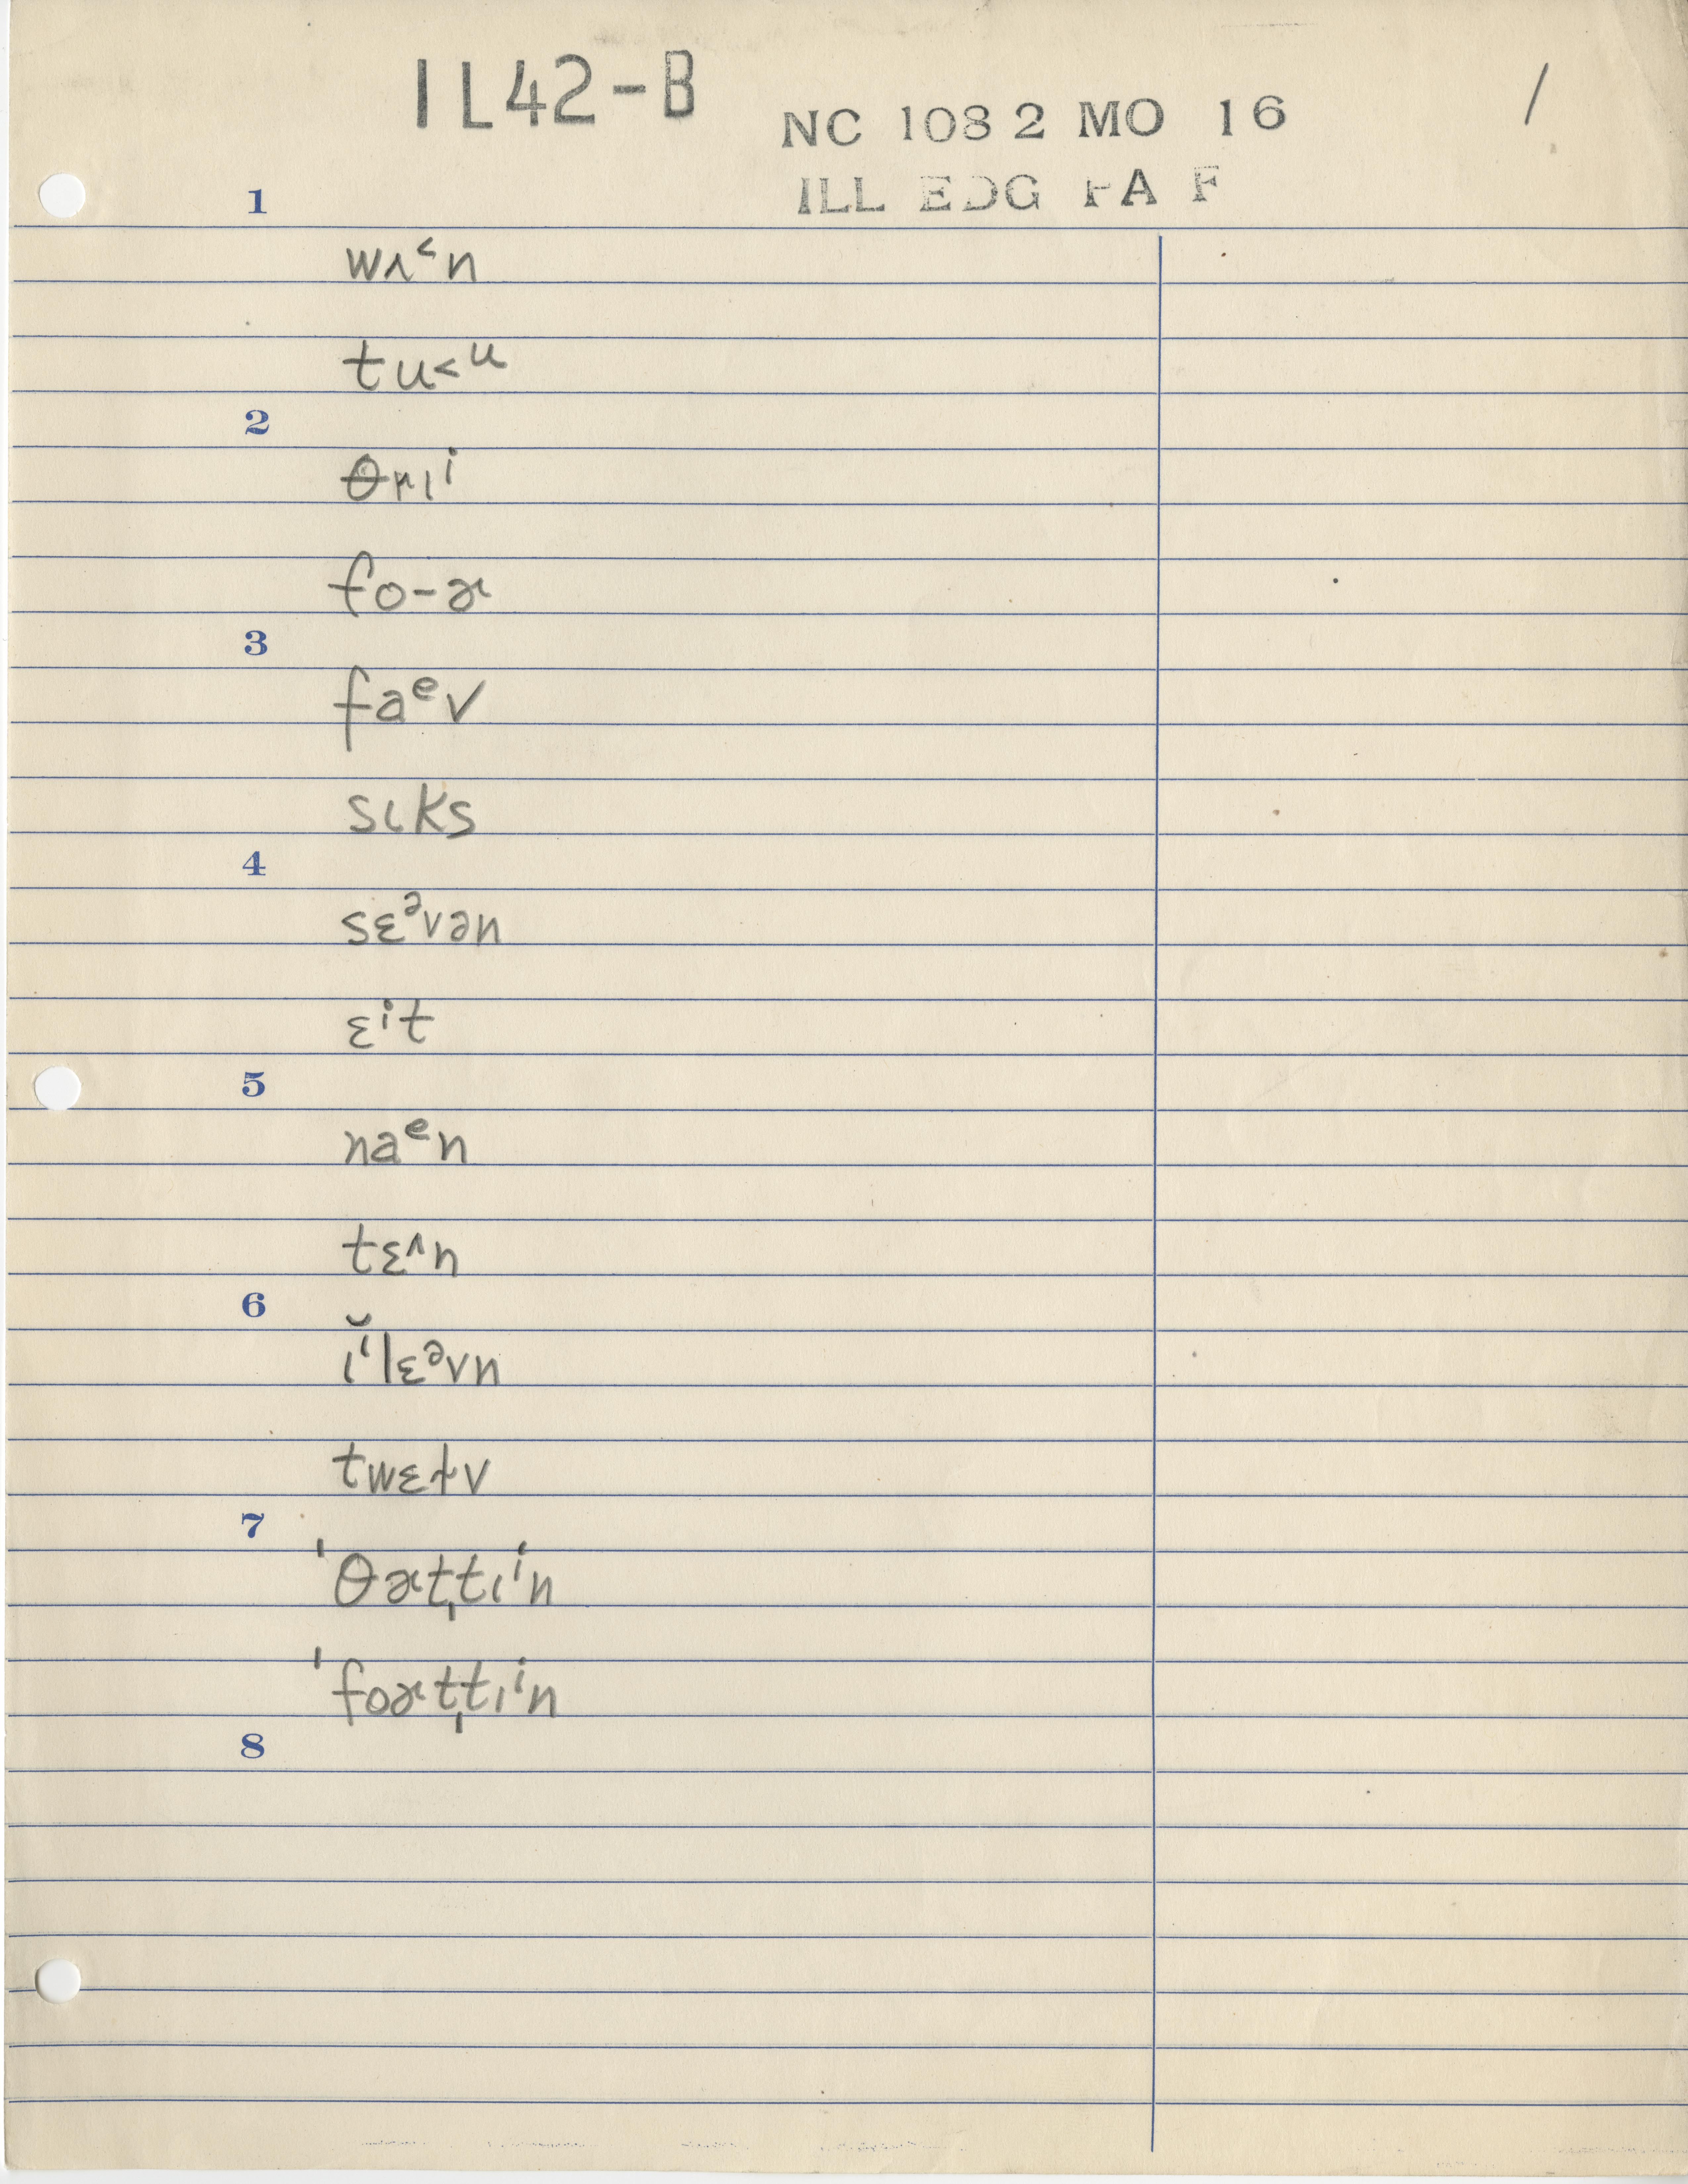 IL42-B
NC 1082 MO 16
/
ILL EDG FA F
1
wʌ˂n
tu˂ᵘ
2
θrɪⁱ
fo-ɚ
3
faᵉv
sɩks
4
sɛᵊvən
ɛⁱt
5
naᵉn
tɛᶺn
6
ɩ̆ˈlɛᵊvn
twɛɫv
7
ˈθɚtˌtɪⁱn
ˈfoɚtˌtɪⁱn
8